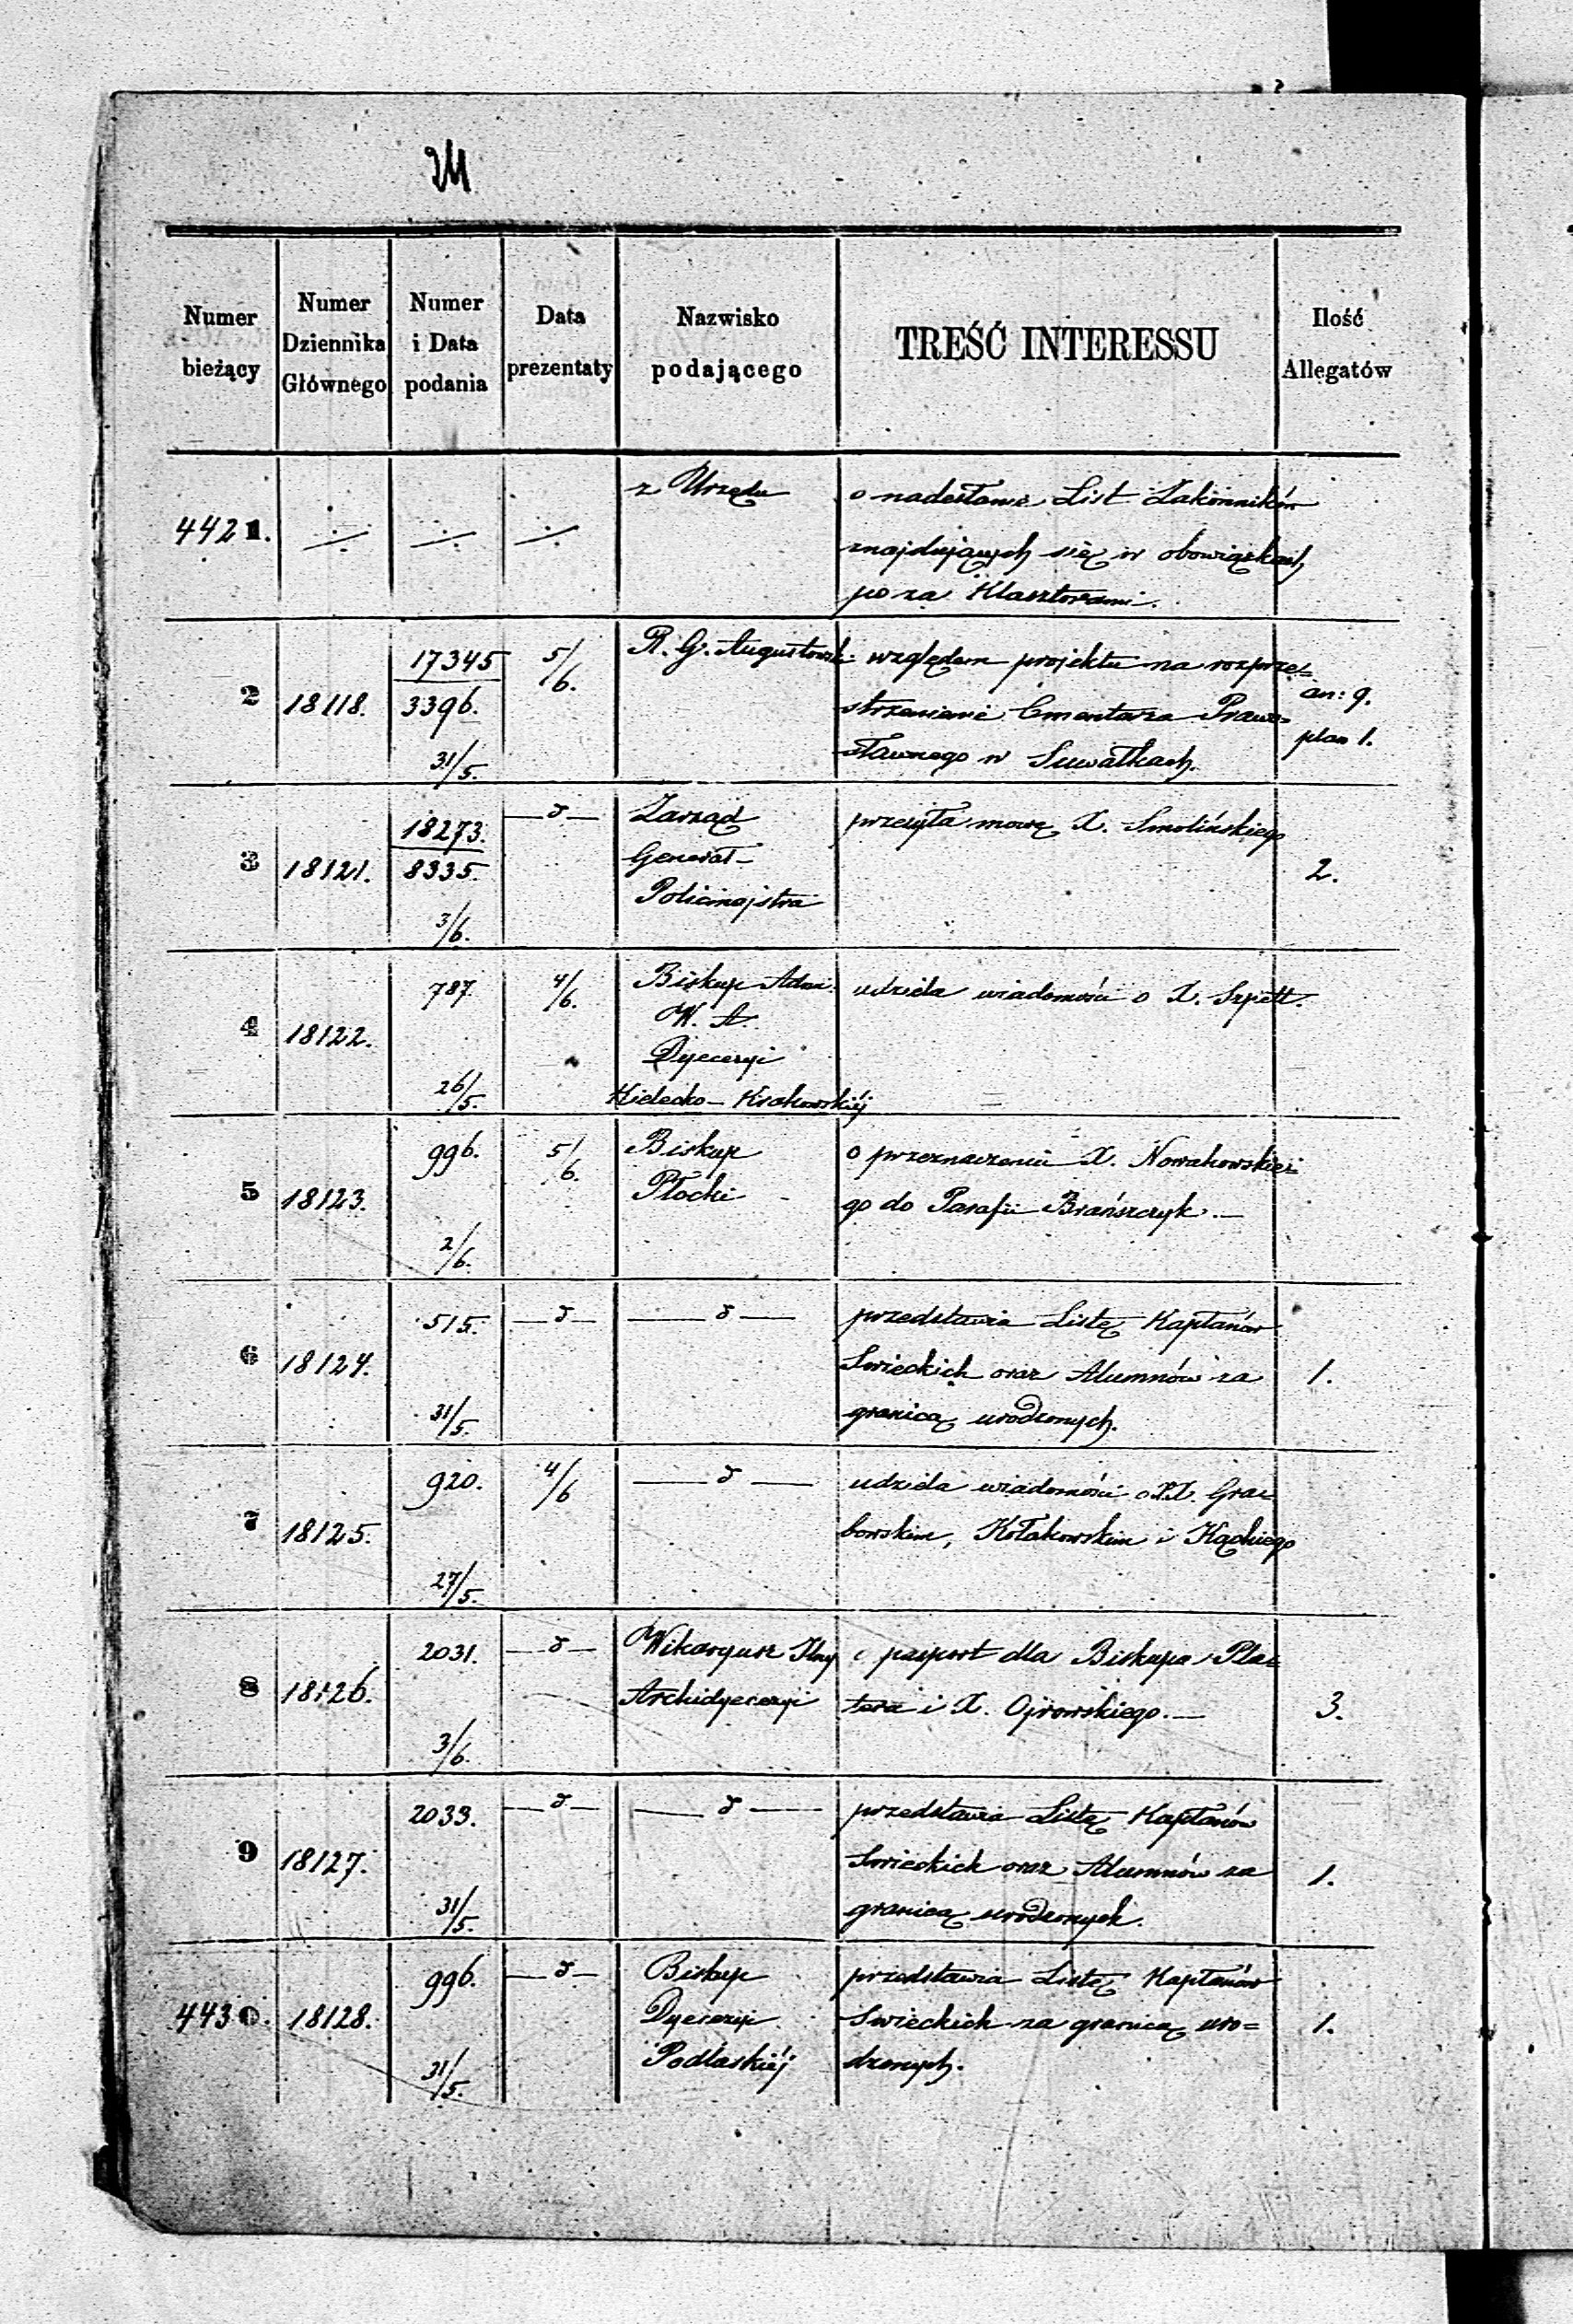 M
Numer bieżący
Numer Dziennika Głównego
Numer i Data podania
Data prezentaty
Nazwisko podającego
TREŚĆ INTERESSU
Ilość Allegatów
4421.
z Urzędu
o nadesłanie List Zakonników
znajdujących się w obowiązkach
po za Klasztorami.
2
18118.
17345
3396.
31/5.
5/6.
R. G. Augustowski
względem projektu na rozprze=
strzenienie Cmentarza Prawo=
sławnego w Suwałkach.
an: 9.
plan 1.
3
18121.
18273.
8335.
3/6.
— d —
Zarząd
Generał-
Policmajstra
przesyła mowę X. Smolińskiego
2.
4
18122.
787.
26/5.
4/6.
Biskup Adm.
W. A.
Dyecezyi
Kielecko-Krakowskiéj
udziela wiadomości o X. Szpett.
5
18123.
996.
2/6.
5/6.
Biskup
Płocki
o przeznaczeniu X. Nowakowskie=
go do Parafii Brańszczyk. —
6
18124.
515.
31/5.
— d —
— d —
przedstawia Listę Kapłanów
Swieckich oraz Alumnów za
granicą urodzonych.
1.
7
18125.
920.
27/5.
4/6
— d —
udziela wiadomości o XX. Gra=
bowskim, Kołakowskim i Kąckiego
8
18126.
2031.
3/6.
— d —
Wikaryusz
Archidyecezyi
o pasport dla Biskupa Pla=
tera i X. Ojrowskiego. —
3.
9
18127.
2033.
31/5.
— d —
— d —
przedstawia Listę Kapłanów
Swieckich oraz Alumnów za
granicą urodzonych.
1.
4430.
18128.
996.
31/5.
— d —
Biskup
Dyecezyi
Podlaskiéj
przedstawia Listę Kapłanów
Swieckich za granicą uro=
dzonych.
1.